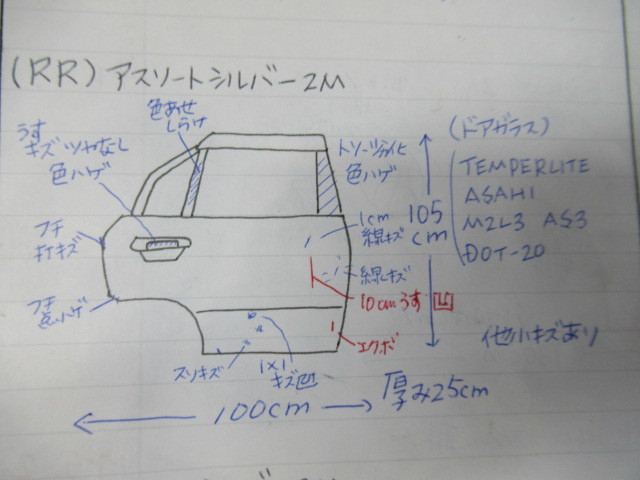 (RR) アスリートシルバー2M
色あせ
しらけ
うす
キズ ツヤなし
色ハゲ
トソーツヤ劣化
色ハゲ
(ドアガラス)
TEMPERLITE
ASAHI
M2L3 AS3
DOT-20
1cm
線キズ
105
cm
フチ
打キズ
線キズ
10cmうす凹
フチ
色ハゲ
エクボ
他小キズあり
スリキズ
1×1
キズ凹
厚み25cm
100cm